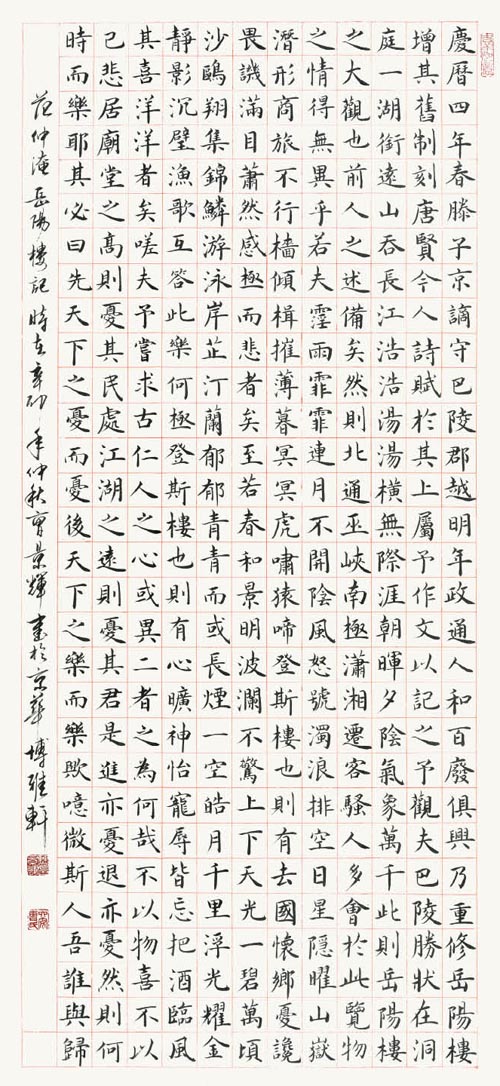 慶曆四年春滕子京謫守巴陵郡越明年政通人和百廢俱興乃重修岳陽樓
增其舊制刻唐賢今人詩賦於其上屬予作文以記之予觀夫巴陵勝狀在洞
庭一湖銜遠山吞長江浩浩湯湯橫無際涯朝暉夕陰氣象萬千此則岳陽樓
之大觀也前人之述備矣然則北通巫峽南極瀟湘遷客騷人多會於此覽物
之情得無異乎若夫霪雨霏霏連月不開陰風怒號濁浪排空日星隱曜山嶽
潛形商旅不行檣傾楫摧薄暮冥冥虎嘯猿啼登斯樓也則有去國懷鄉憂讒
畏譏滿目蕭然感極而悲者矣至若春和景明波瀾不驚上下天光一碧萬頃
沙鷗翔集錦鱗游泳岸芷汀蘭郁郁青青而或長煙一空皓月千里浮光耀金
靜影沉璧漁歌互答此樂何極登斯樓也則有心曠神怡寵辱皆忘把酒臨風
其喜洋洋者矣嗟夫予嘗求古仁人之心或異二者之為何哉不以物喜不以
己悲居廟堂之高則憂其民處江湖之遠則憂其君是進亦憂退亦憂然則何
時而樂耶其必曰先天下之憂而憂後天下之樂而樂歟噫微斯人吾誰與歸
范仲淹岳陽樓記時在辛卯年仲秋曹景輝書於京華博雅軒